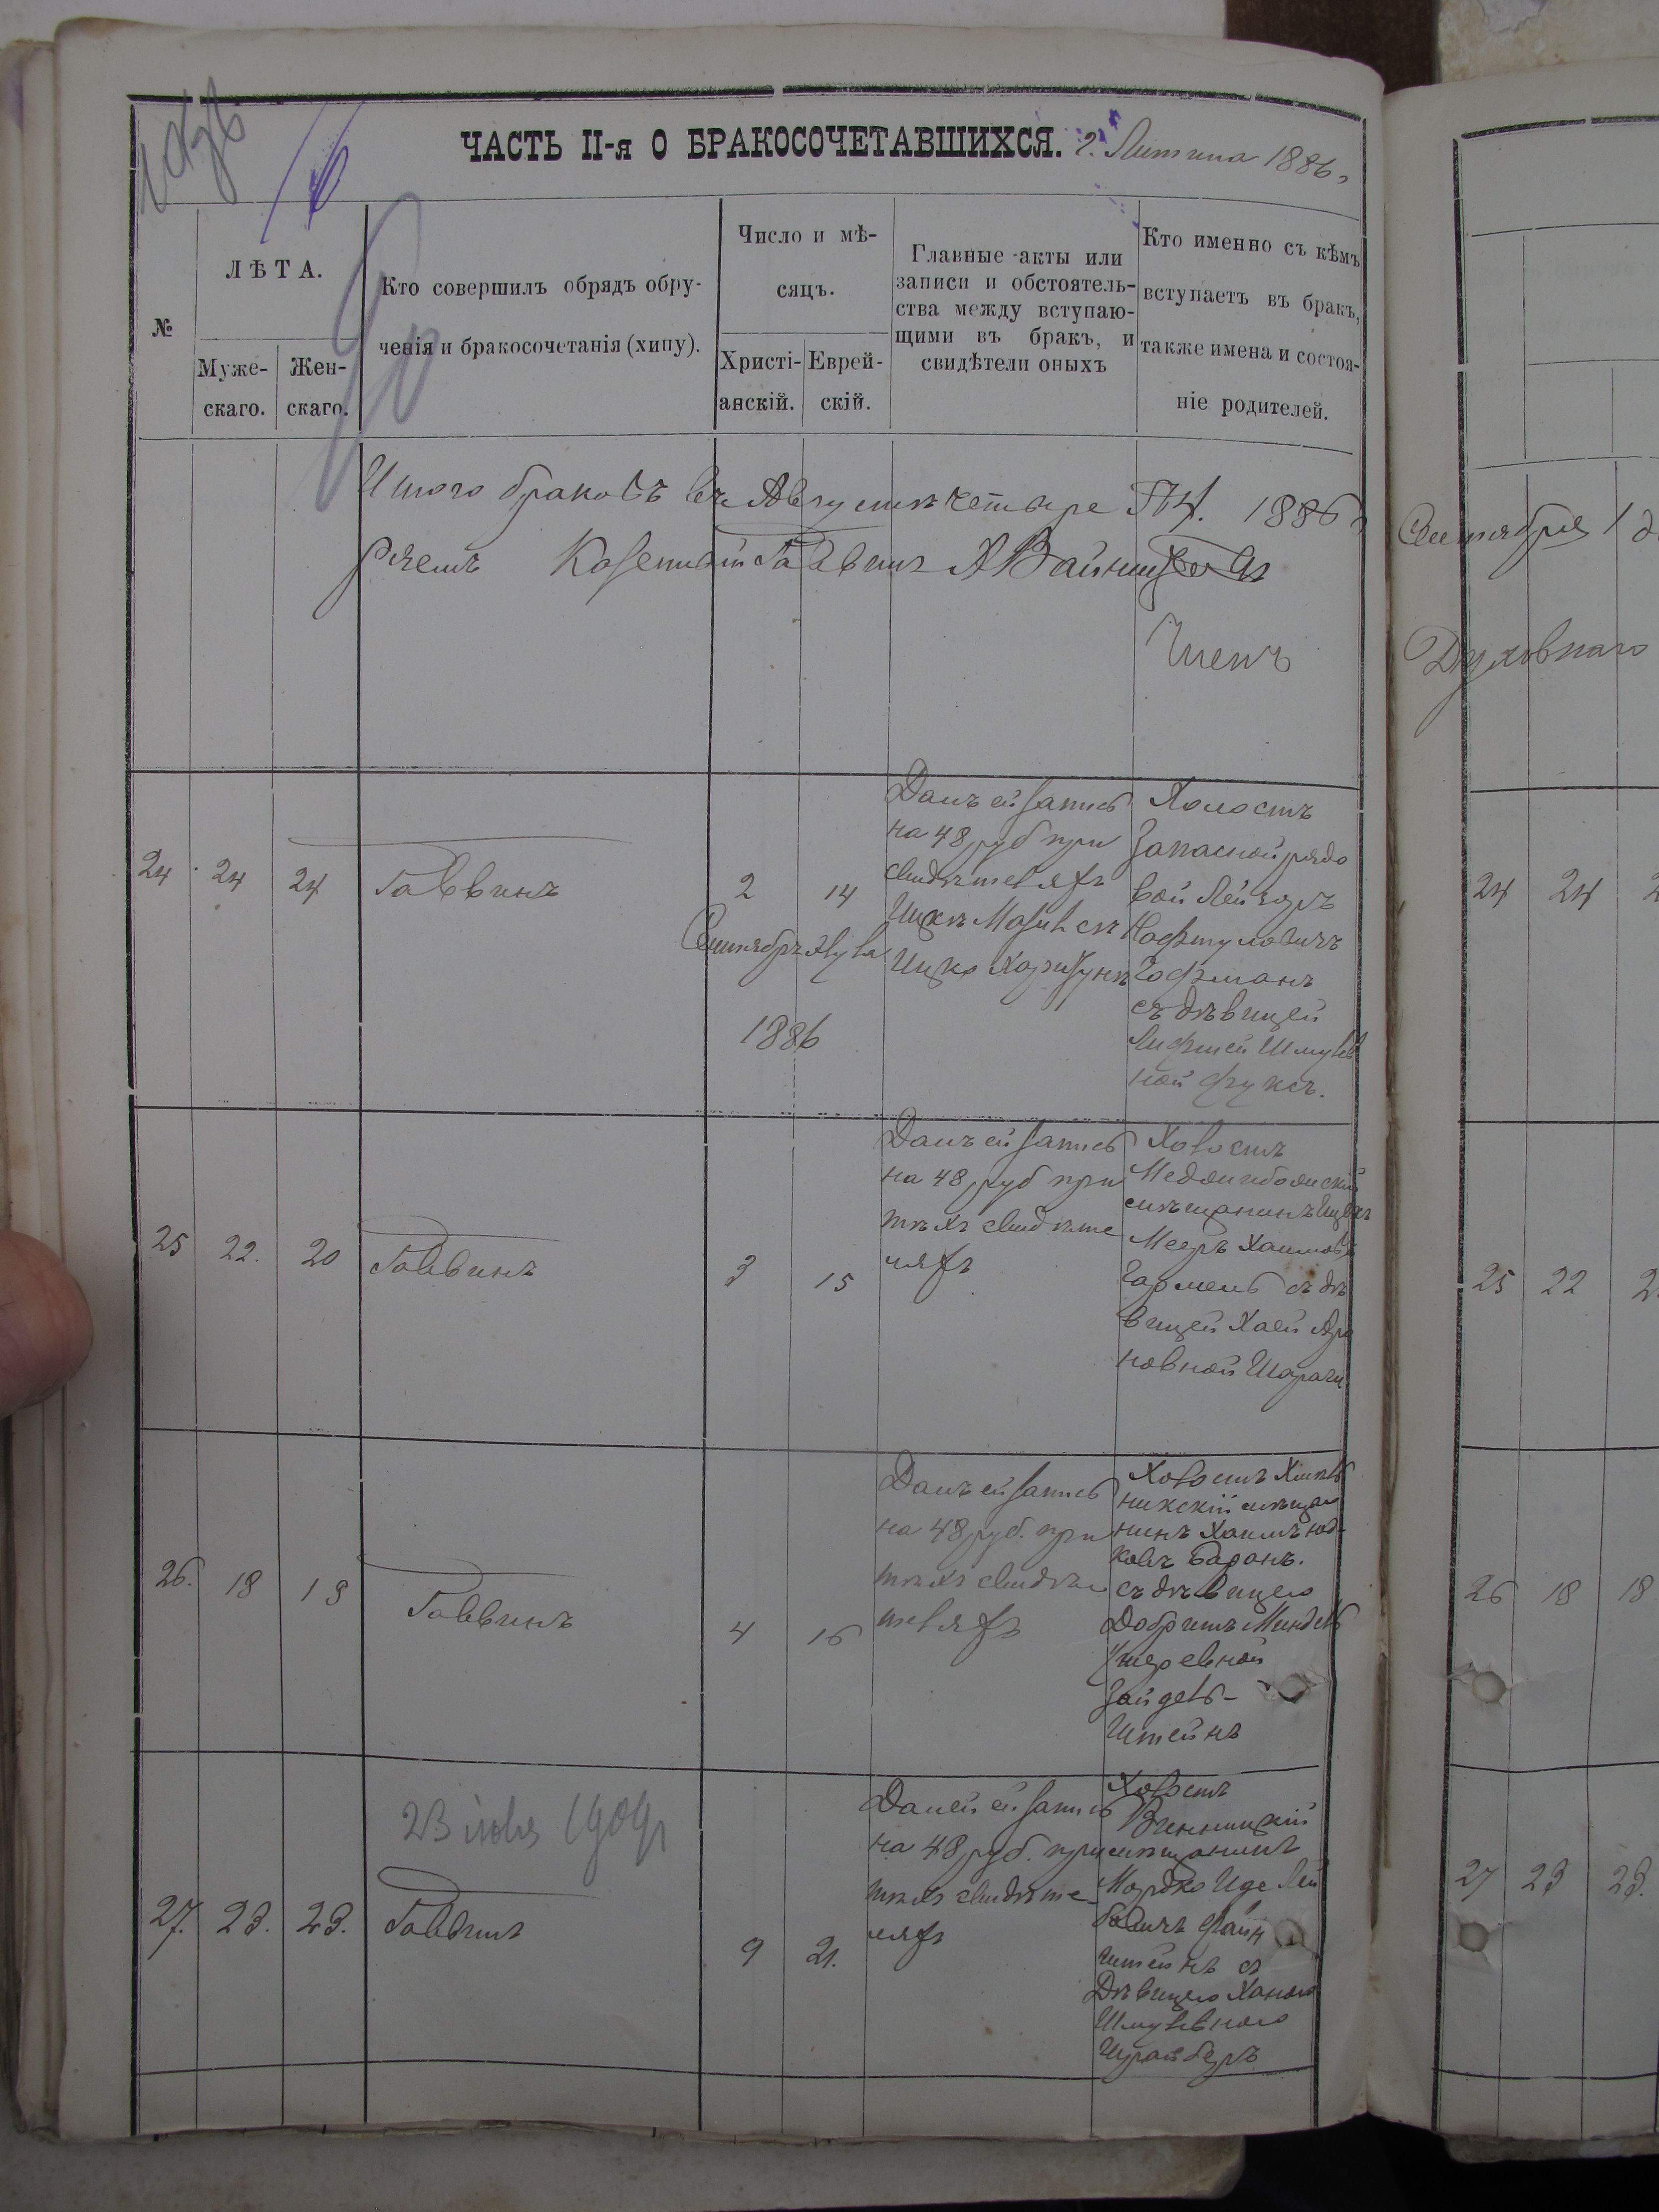 ЧАСТЬ II-я О БРАКОСОЧЕТАВШИХСЯ. г. Литина 1886
№
ЛѢТА.
Муже-
скаго.
Жен-
скаго.
Кто совершилъ обрядъ обру-
ченія и бракосочетанія (хипу).
Число и мѣ-
сяцъ.
Христі-
анскій.
Еврей-
скій.
Главные акты или
записи и обстоятель-
ства между вступаю-
щими въ бракъ, и
свидѣтели оныхъ
Кто именно съ кѣмъ
вступаетъ въ бракъ,
также имена и состоя-
ніе родителей.
Итого браковъ въ Августѣ четыре 1886
Казенный Раввинъ
Членъ
24
24
24
Раввинъ
2
14
Сентябрь
1886
Далъ ей запись
на 48 руб при
свидѣтеляхъ
Ицко
Холостъ
Запасной рядо
вой Лейзеръ
Нафтуловичъ
Гофманъ
съ дѣвицей
Шмуль
ной Фуксъ.
25
22.
20
Раввинъ
3
15
Далъ ей запись
на 48 руб при
тѣхъ свидѣте
ляхъ
Холостъ
мѣщанинъ
Мееръ
съ дѣ
вицей Хаей Аро
новной
26.
18
18
Раввинъ
4
16
Далъ ей запись
на 48 руб. при
тѣхъ свидѣ
теляхъ
Холостъ Хмѣль
никскій мѣща
нинъ Хаимъ Юд-
Баранъ.
съ дѣвицею
Миндель
Зайдель-
Штейнъ
23 1909
27.
23.
23.
Раввинъ
9
21.
Далъ ей запись
на 48 руб. при
тѣхъ свидѣте
ляхъ
Холостъ
Винницкій
мѣщанинъ
Мордко Лей
Файн
штейнъ съ
Дѣвицею Ханою
Шмулевною
Шрайберъ
Сентября 1
Духовнаго
24
24
25
22
26
18
18
27
23
23.